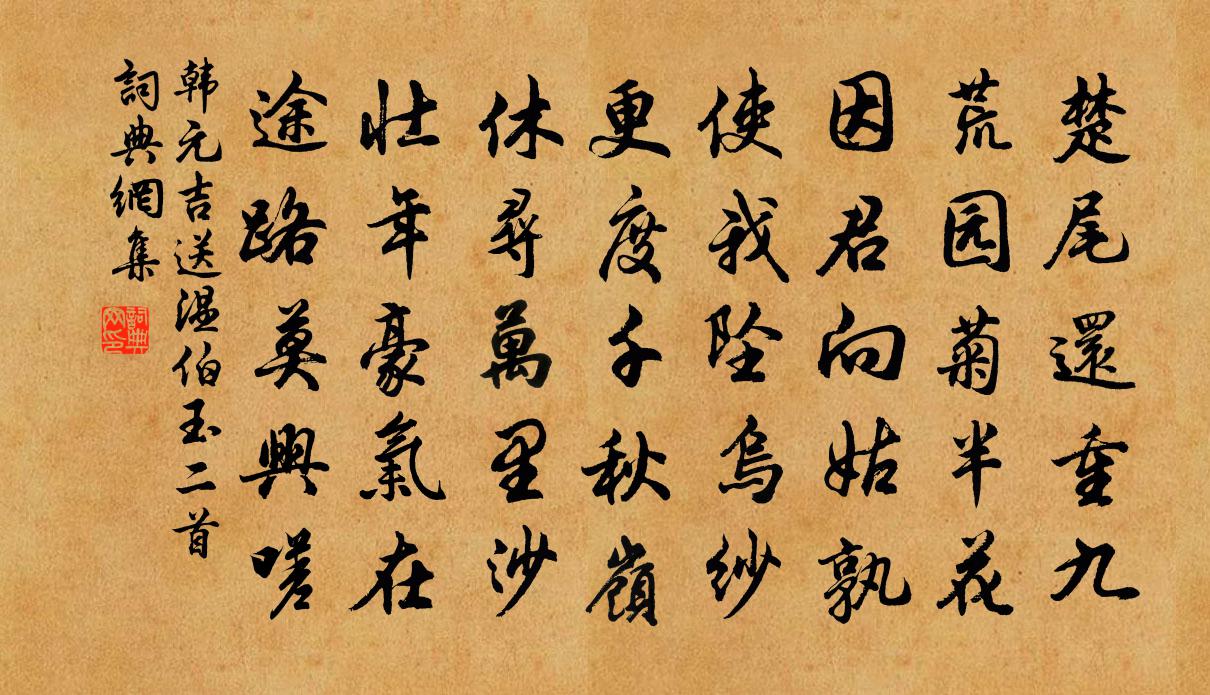 楚尾還重九
荒园菊半花
因君向姑孰
使我坠烏紗
更度千秋嶺
休尋萬里沙
壮年豪氣在
途路莫興嗟
韩元吉送温伯玉二首
詞典網集
詞典網印